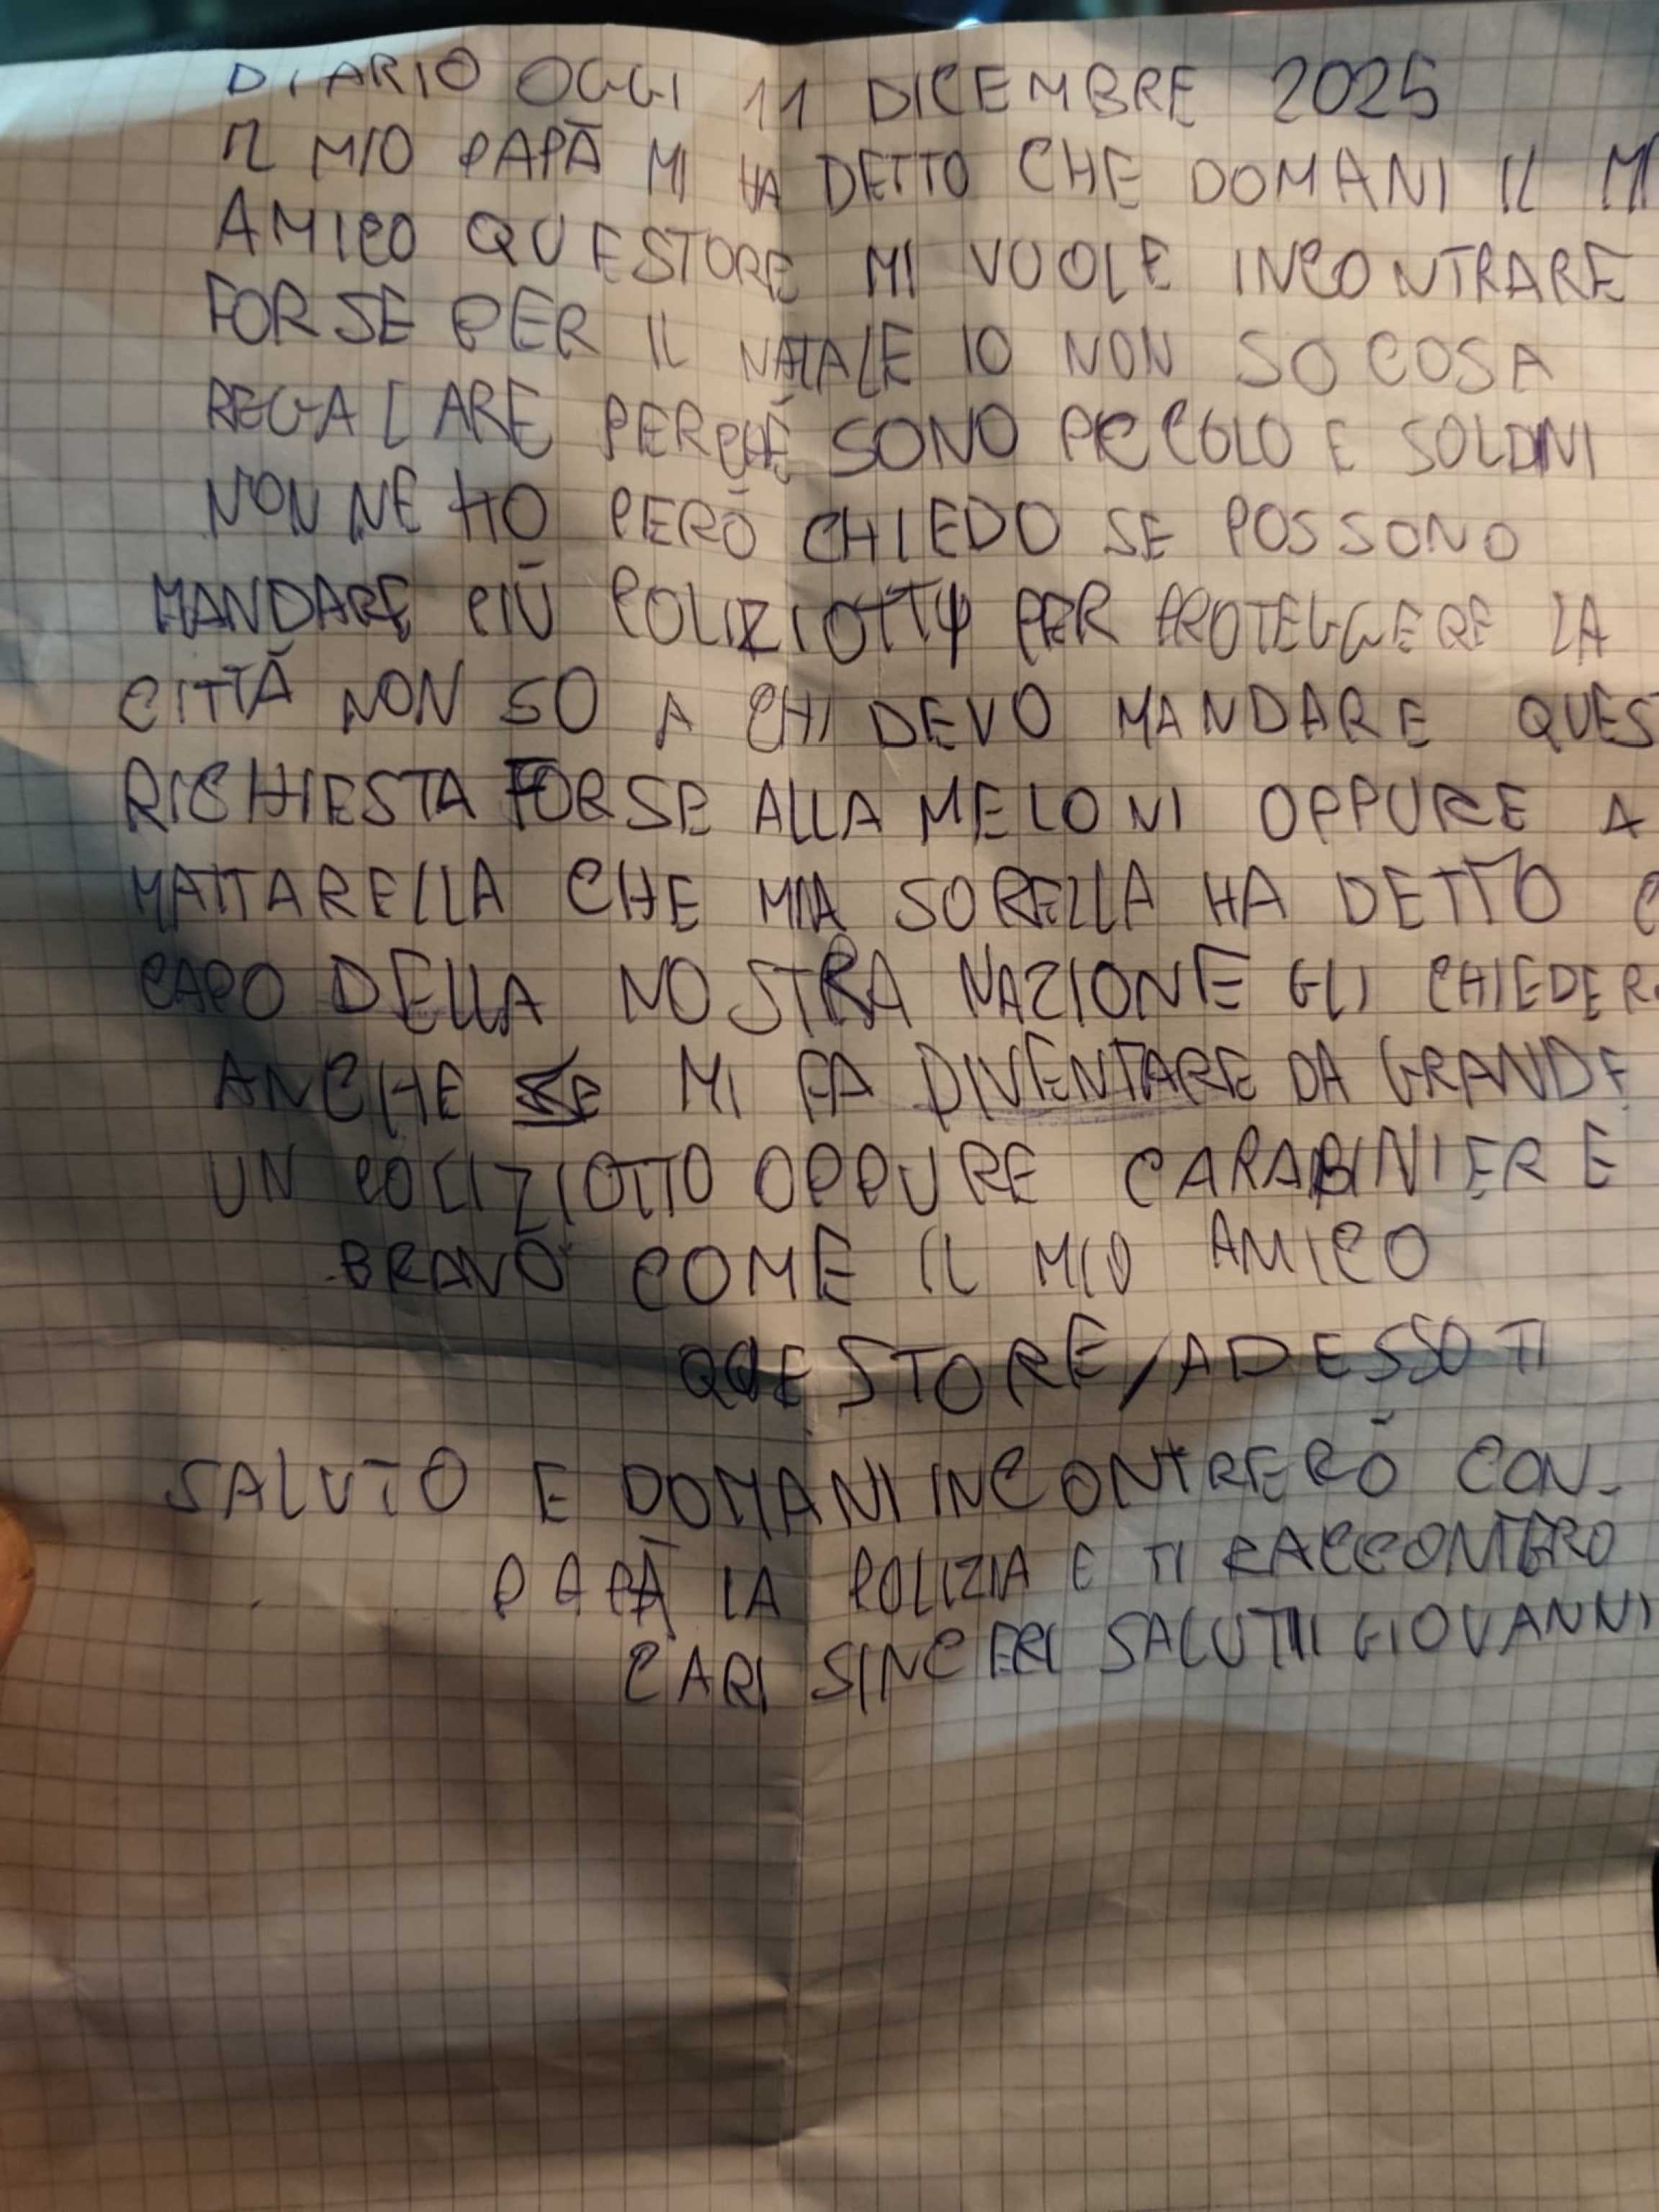 DIARIO OGGI 11 DICEMBRE 2025
IL MIO PAPÀ MI HA DETTO CHE DOMANI IL MI
AMICO QUESTORE MI VUOLE INCONTRARE
FORSE PER IL NATALE IO NON SO COSA
REGALARE PERCHÈ SONO PICCOLO E SOLDINI
NON NE HO PERÒ CHIEDO SE POSSONO
MANDARE PIÙ POLIZIOTTI PER PROTEGGERE LA
CITTÀ NON SO A CHI DEVO MANDARE QUEST
RICHIESTA FORSE ALLA MELONI OPPURE A
MATTARELLA CHE MIA SORELLA HA DETTO C
CAPO DELLA NOSTRA NAZIONE GLI CHIEDER
ANCHE SE MI FA DIVENTARE DA GRANDE
UN POLIZIOTTO OPPURE CARABINIERE
BRAVO COME IL MIO AMICO
QUESTORE, ADESSO TI
SALUTO E DOMANI INCONTRERÒ CON
PAPÀ LA POLIZIA E TI RACCONTERÒ
CARI SINCERI SALUTI GIOVANNI